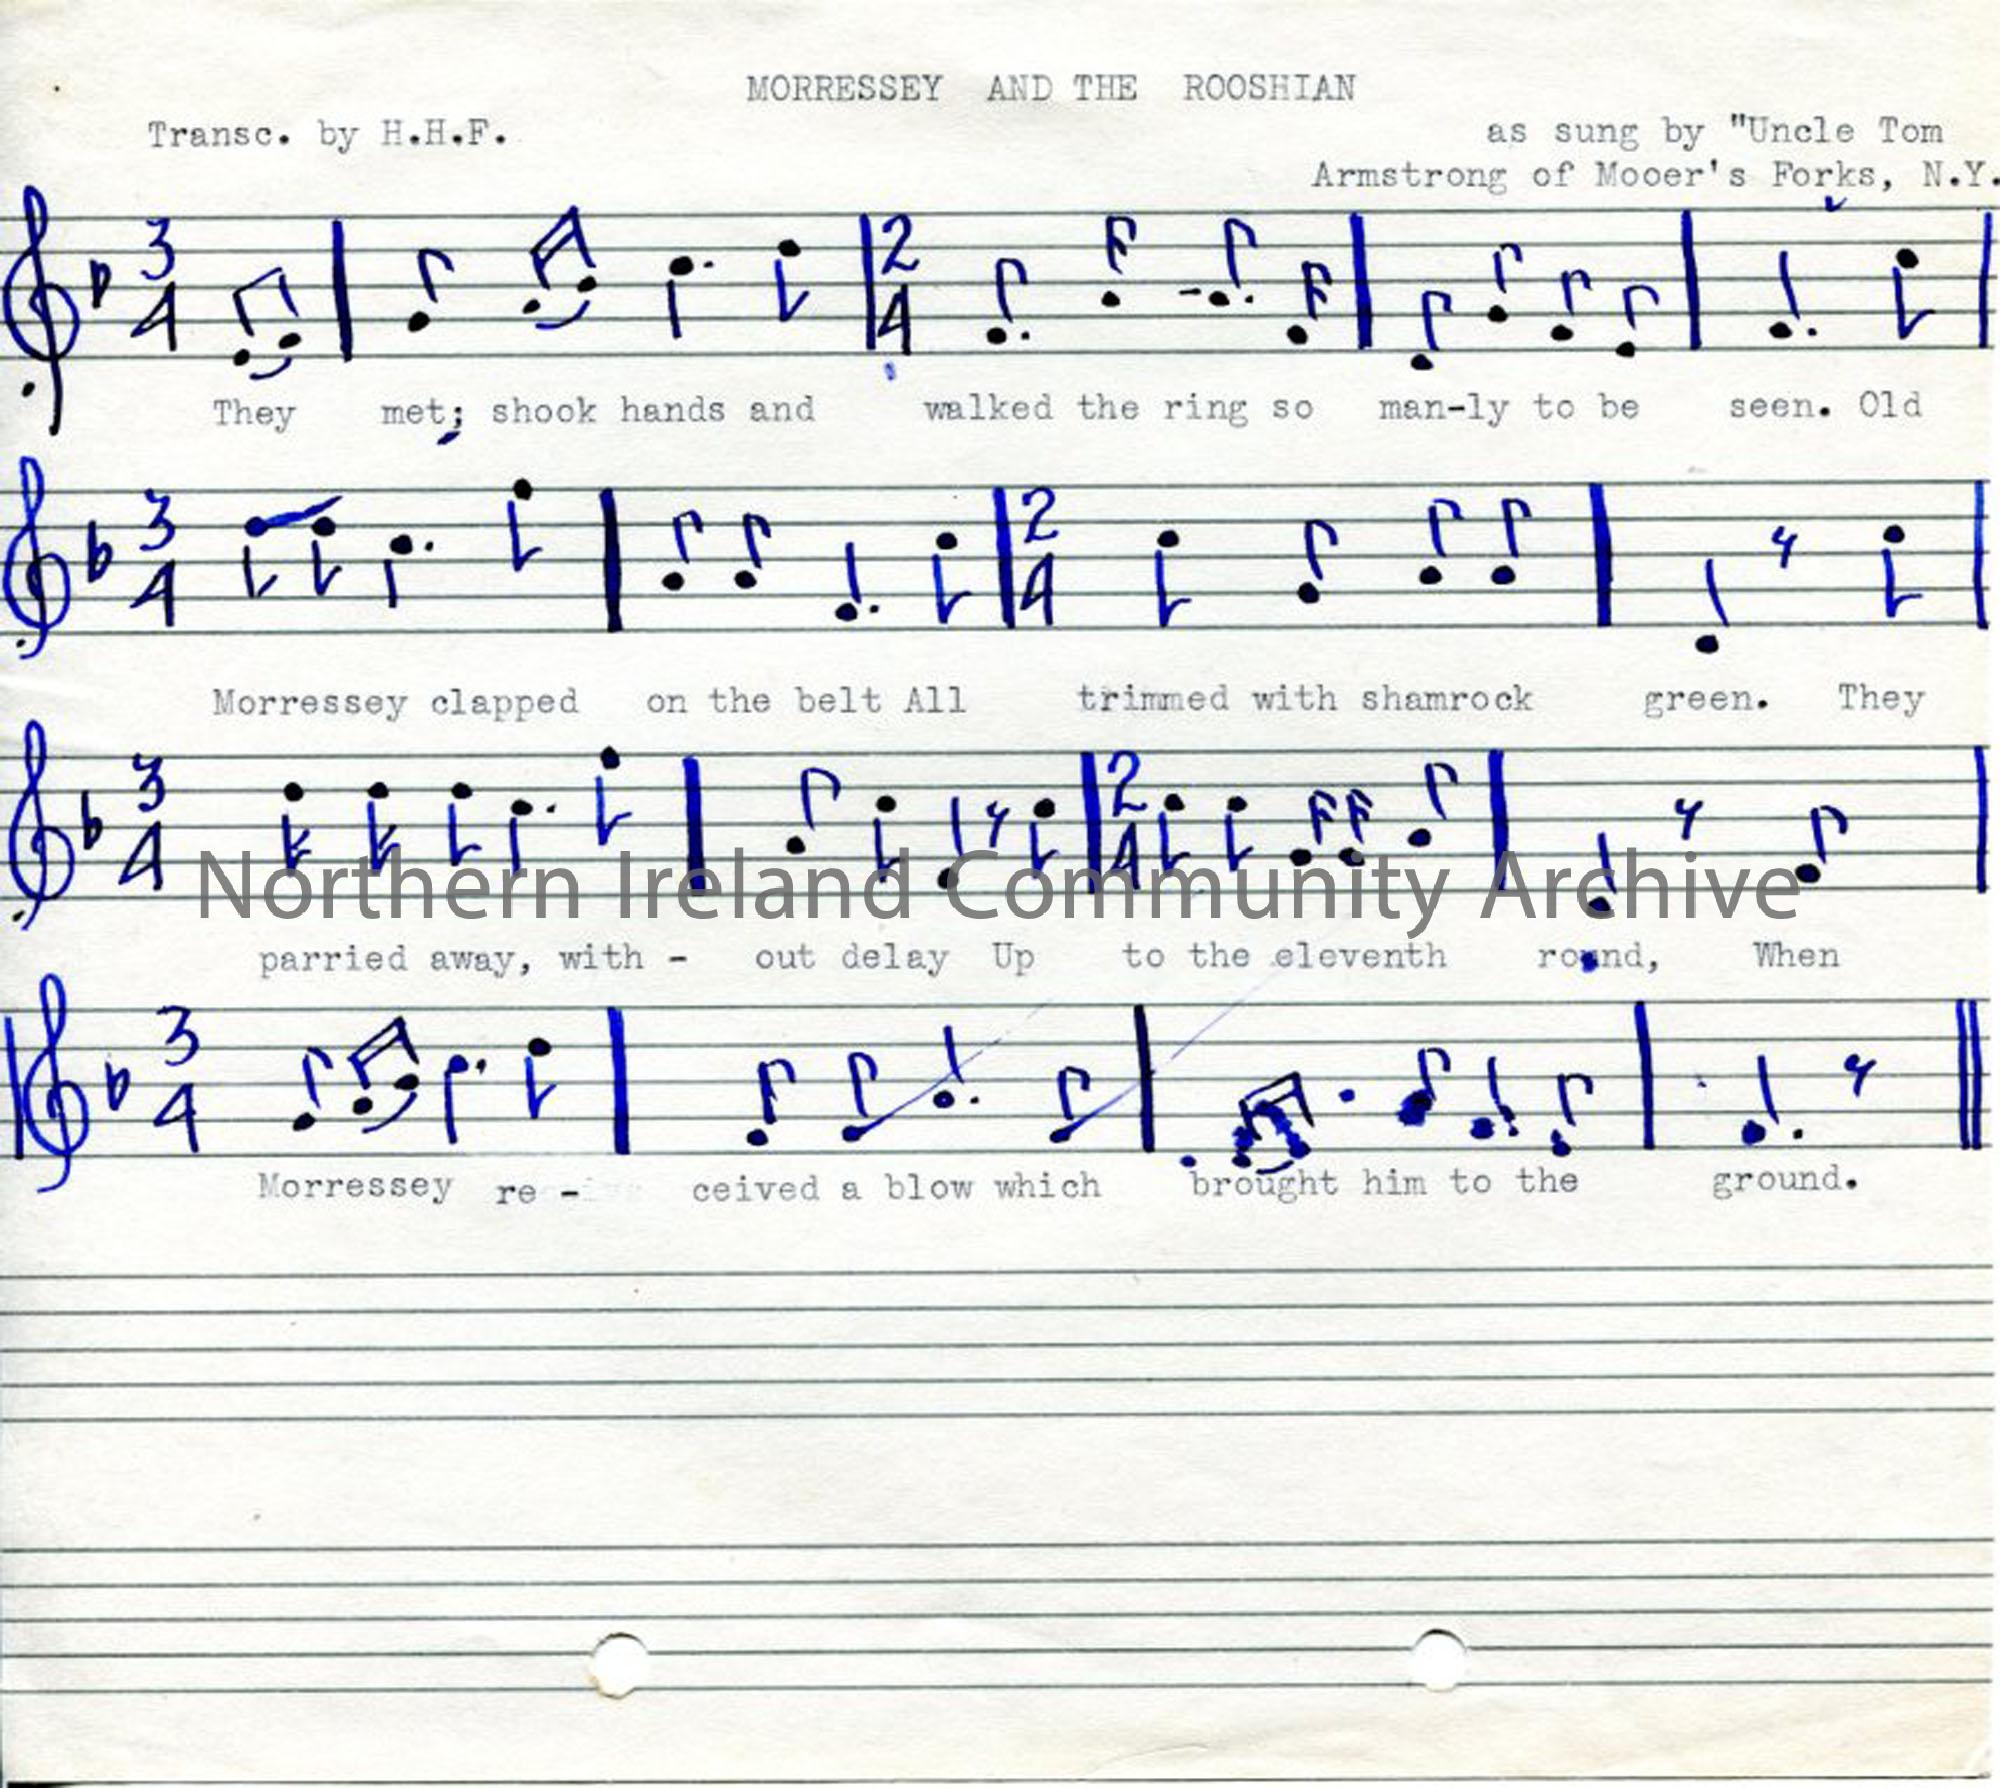 MORRESSEY AND THE ROOSHIAN
Transc. by H.H.F.
as sung by "Uncle Tom
Armstrong of Mooer's Forks, N.Y.
3 2
4 4
They met; shook hands and walked the ring so man-ly to be seen. Old
3 2
4 4
Morressey clapped on the belt All trimmed with shamrock green. They
3 2
4 4
Northern Ireland Community Archive
parried away, with - out delay Up to the eleventh round, When
3
4
Morressey re - ceived a blow which brought him to the ground.